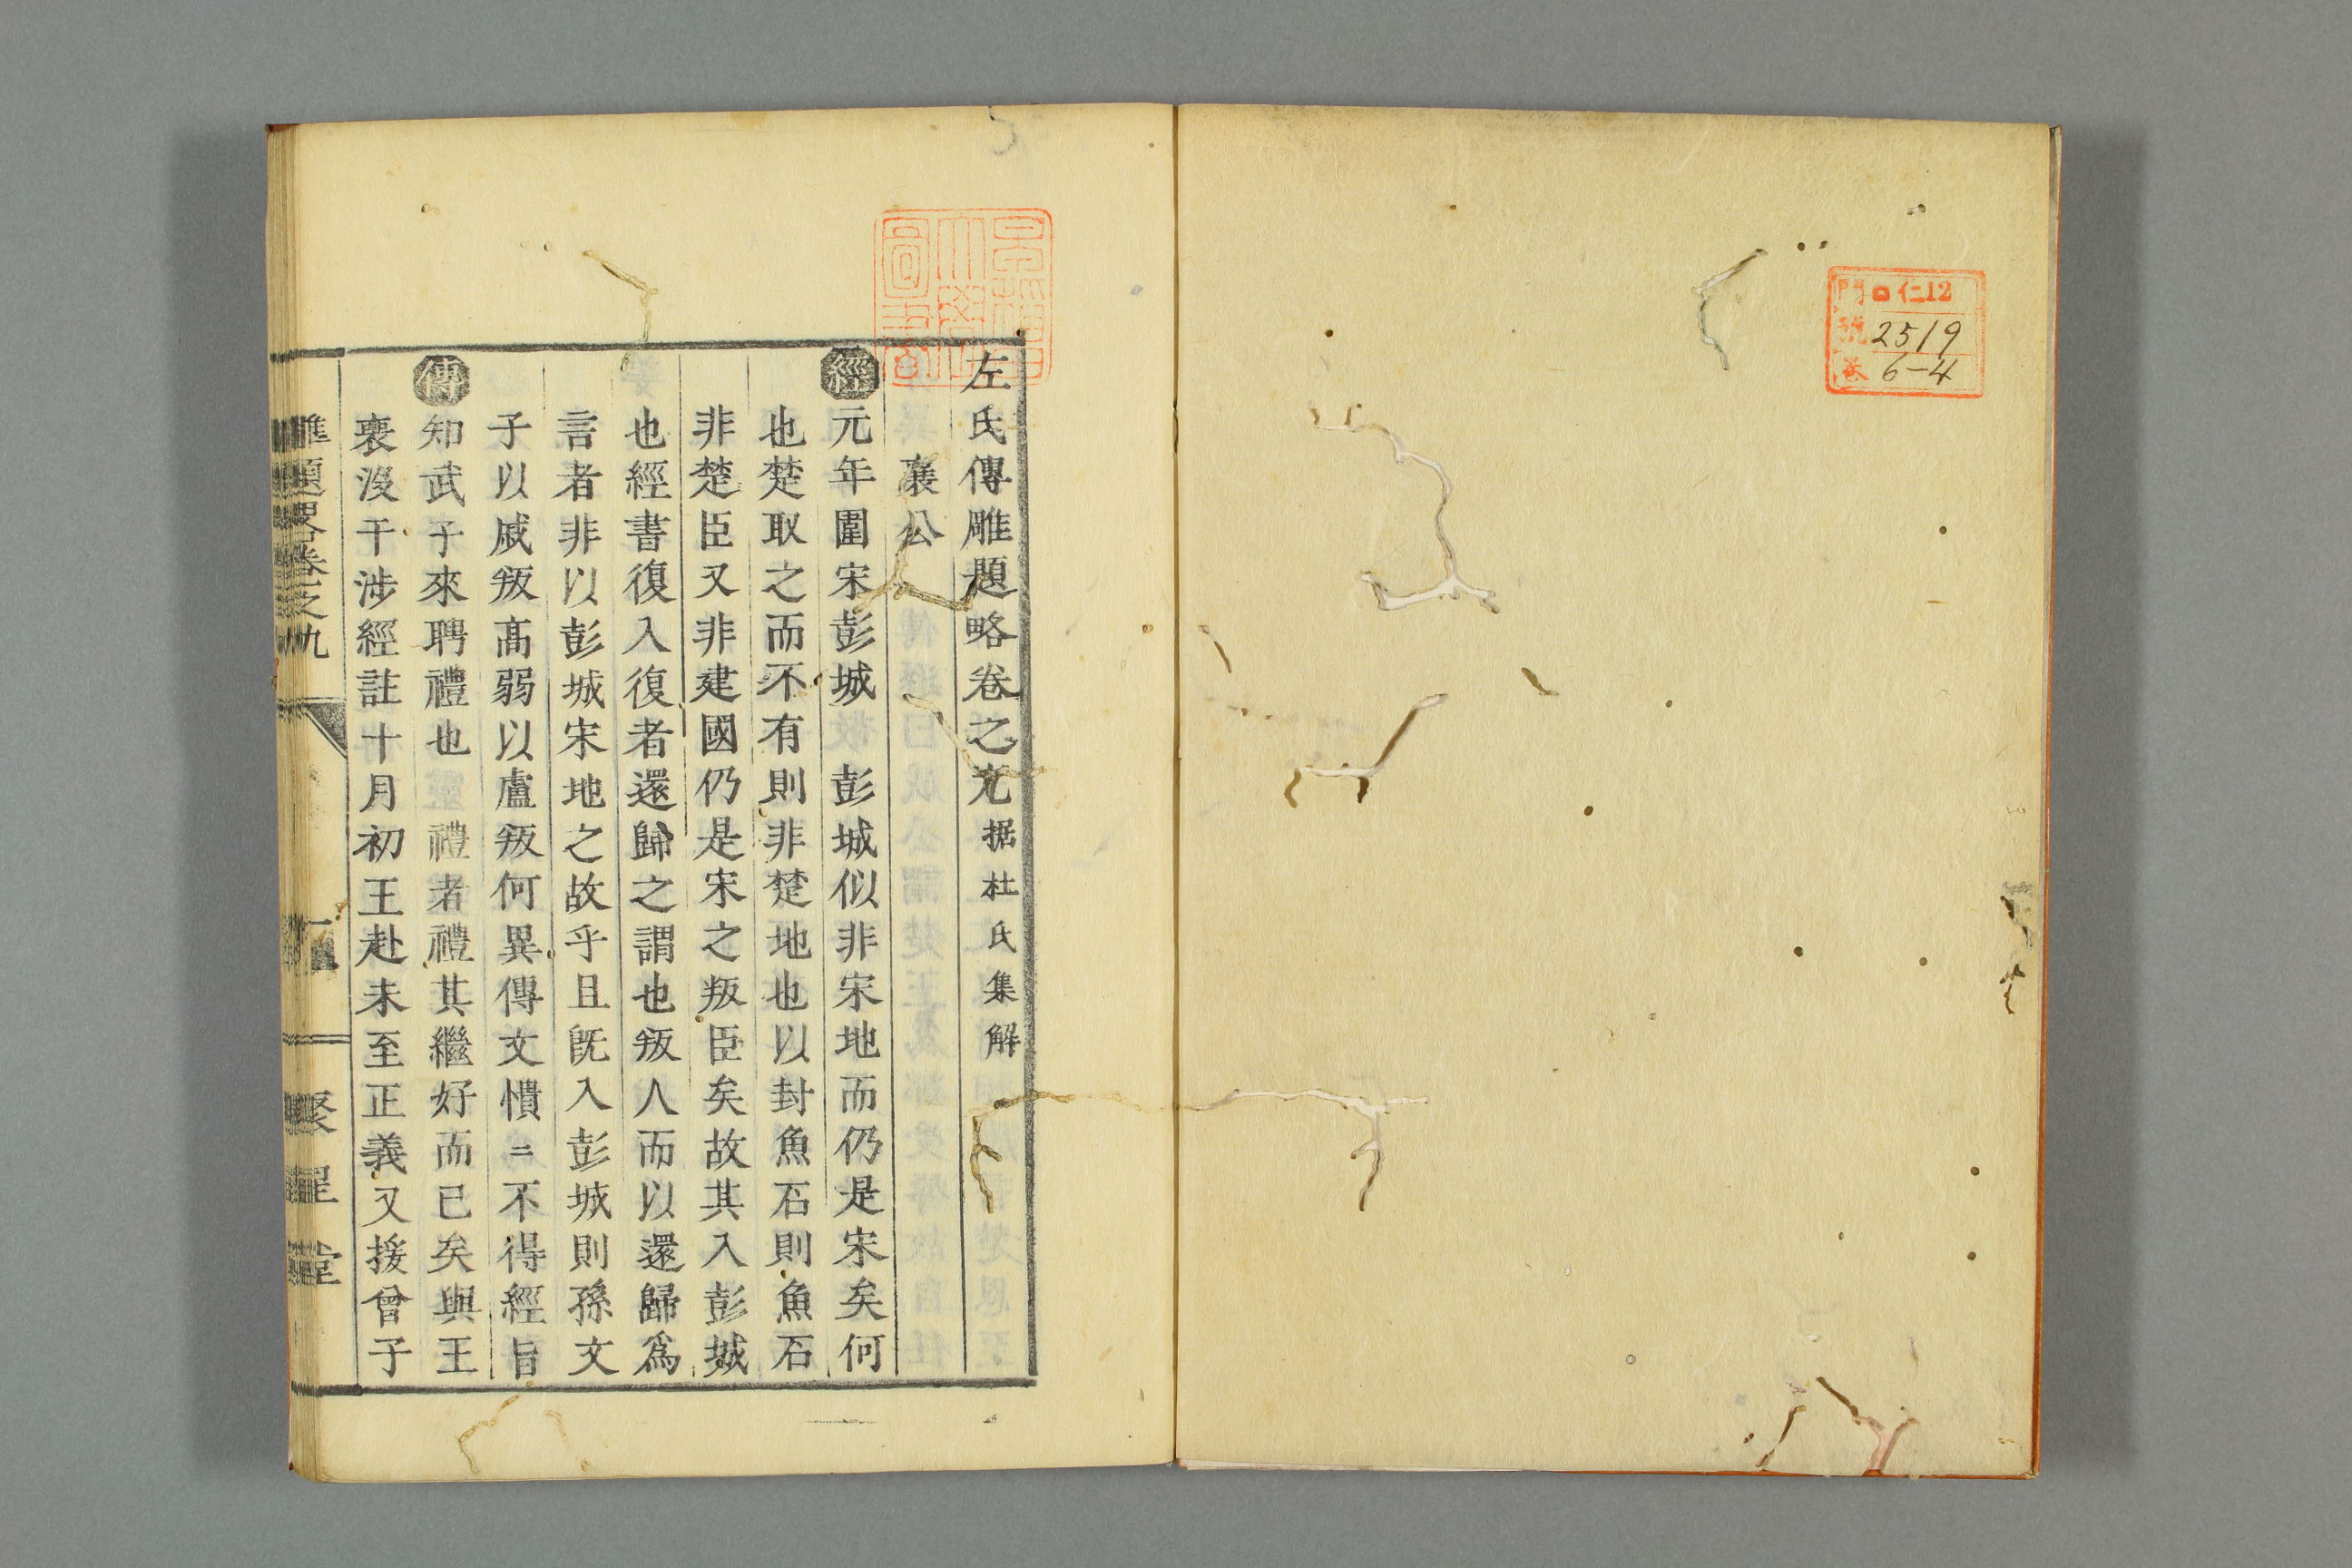 門 ロ 仁12
號 2519
卷 6-4
左氏傳雕題略卷之九 据杜氏集解
襄公
經 元年圍宋彭城 彭城似非宋地而仍是宋矣何
也楚取之而不有則非楚地也以封魚石則魚石
非楚臣又非建國仍是宋之叛臣矣故其入彭城
也經書復入復者還歸之謂也叛人而以還歸爲
言者非以彭城宋地之故乎且旣入彭城則孫文
子以戚叛高弱以盧叛何異傳文憒〻不得經旨
傳 知武子來聘禮也 禮者禮其繼好而已矣與王
喪沒干涉經註十月初王赴未至正義又援曾子
雕題畧卷之九
聚星堂